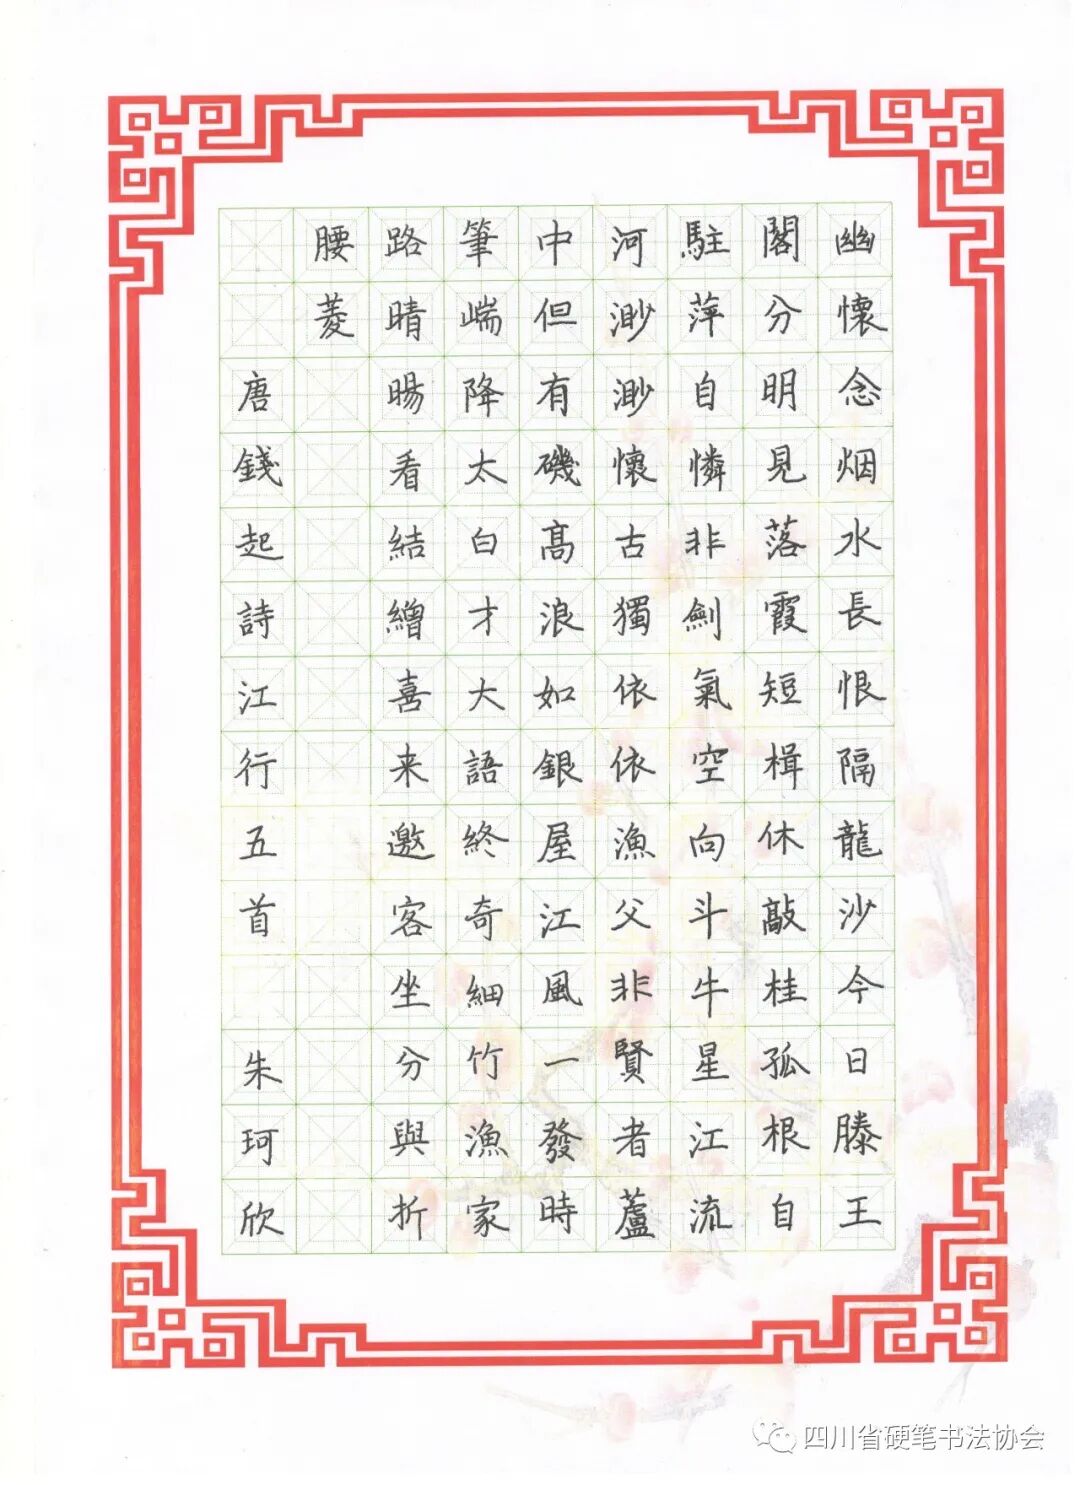 幽懷念烟水長恨隔龍沙今日滕王
閣分明見落霞短楫休敲桂孤根自
駐萍自憐非劍氣空向斗牛星江流
河渺渺懷古獨依依漁父非賢者蘆
中但有磯高浪如銀屋江風一發時
筆端降太白才大語終奇細竹漁家
路晴暘看結繒喜来邀客坐分與折
腰菱
唐錢起詩江行五首 朱珂欣
四川省硬笔书法协会